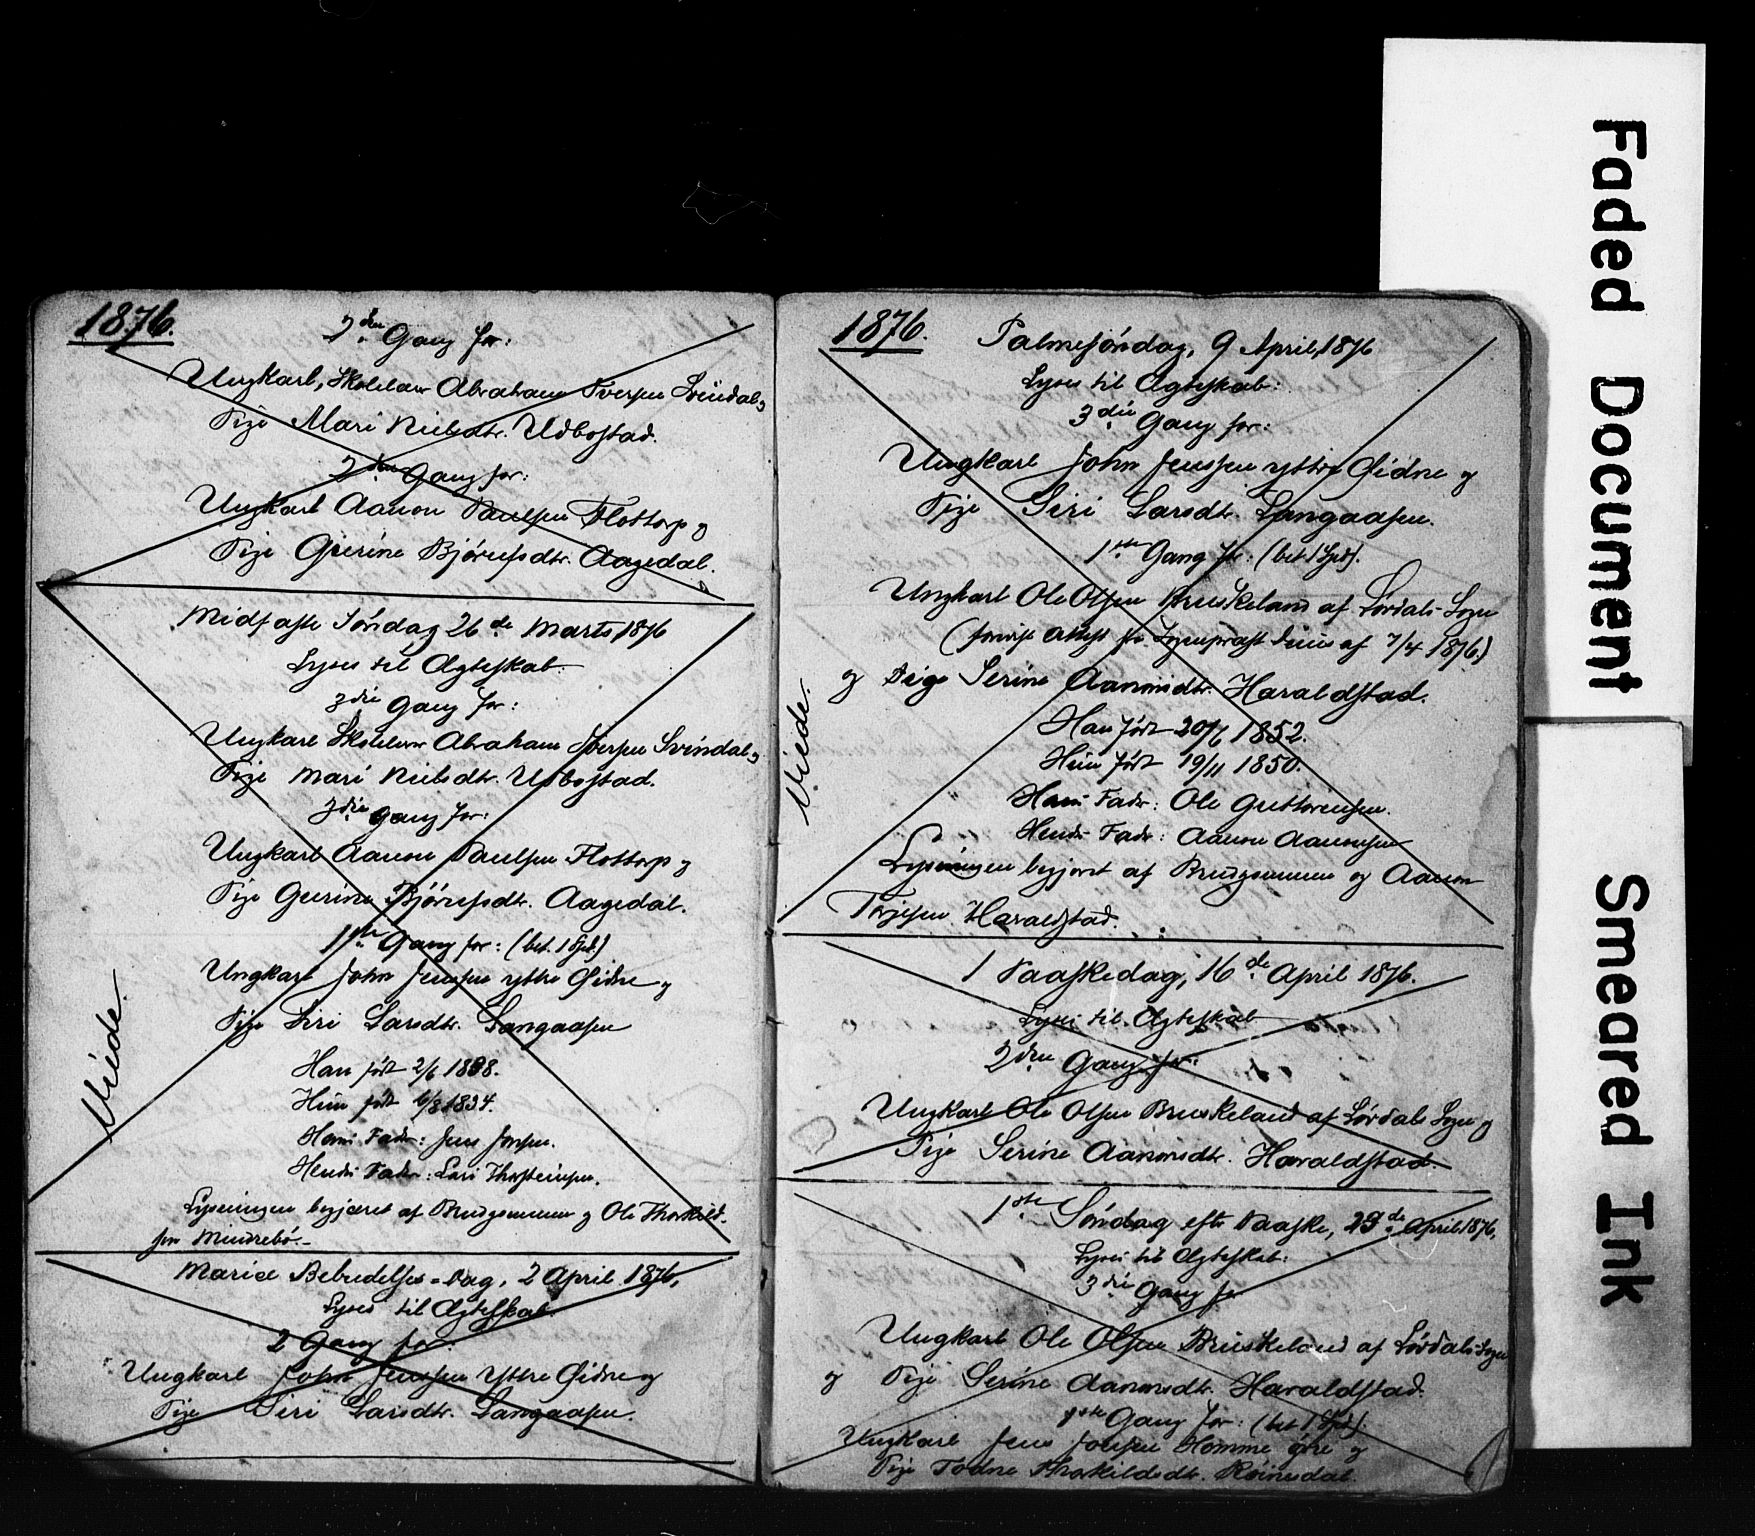 1876.
2den Gang for:
Ungkarl, Skolelær Abraham Iversen Svindal og
Pige Mari Nielsdtr. Udbostad.
2den Gang for:
Ungkarl Aanon Paulsen Flottorp og
Pige Gurine Bjørulfsdtr. Aagedal.
Midfaste Søndag 26de Marts 1876
Lyses til Ægteskab:
3die Gang for:
Ungkarl Skolelær Abraham Iversen Svindal og
Pige Mari Nielsdtr. Udbostad.
3die Gang for:
Ungkarl Aanon Paulsen Flottorp og
Pige Gurine Bjørulfsdtr. Aagedal.
1ste Gang for: (bet. 1 Spd.)
Ungkarl John Jensen yttre Øidne og
Pige Siri Larsdtr. Langaasen
Han født 2/6 1838.
Hun født 6/8 1834.
Hans Fader: Jens
Hendes Fader: Lars Thorsteinsen.
Lysningen begjæret af Brudgommen og Ole Thorkild-
sen Mindrebø.-
Viede.
Mariæ Bebudelses-Dag, 2 April 1876,
Lyses til Ægteskab:
2 Gang for:
Ungkarl John Jensen Yttre Øidne og
Pige Siri Larsdtr. Langaasen.
1876.
Palmesøndag, 9 April, 1876
Lyses til Ægteskab:
3die Gang for:
Ungkarl John Jensen yttre Øidne og
Pige Siri Larsdtr. Langaasen.
1ste Gang for: (bet. 1 Spd).
Ungkarl Ole Olsen Bruskeland af Lørdals-Sogn
(forevist Attest fra Sognepræst af 7/4 1876.)
og Pige Serine Aanonsdtr. Haraldstad.
Han født 20/6 1852.
Hun født 19/11 1850.
Hans Fader: Ole Guttormsen.
Hendes Fader: Aanon Aanonsen
Lysningen begjæret af Brudgommen og Aanon
Terjesen Haraldstad.
Viede.
1 Paaskedag, 16de April 1876.
Lyses til Ægteskab
2den Gang for:
Ungkarl Ole Olsen Bruskeland af Lørdals Sogn og
Pige Serine Aanonsdtr. Haraldstad.
1ste Søndag efter Paaske, 23de April 1876,
Lyses til Ægteskab:
3die Gang for
Ungkarl Ole Olsen Bruskeland af Lørdals-Sogn
og Pige Serine Aanonsdtr. Haraldstad.
1ste Gang for: (bet 1 Spd).
Ungkarl Jens Homme øvre og
Pige Todne Thorkildsdtr. Røinesdal.
Faded Document
Smeared Ink